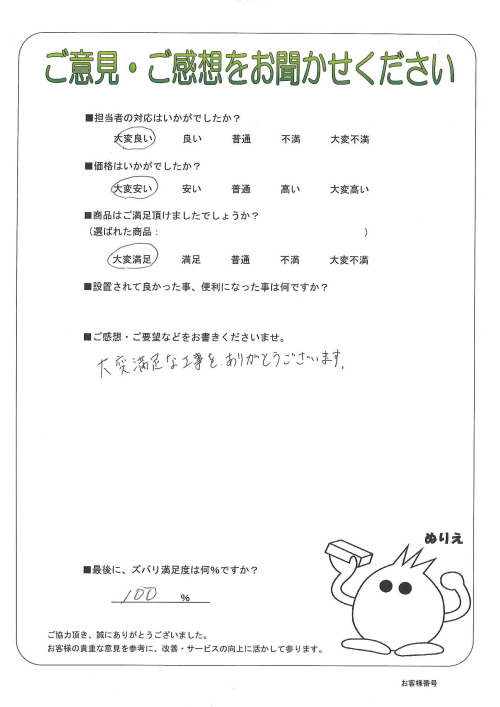 ご意見・ご感想をお聞かせください
■担当者の対応はいかがでしたか？
大変良い 良い 普通 不満 大変不満
■価格はいかがでしたか？
大変安い 安い 普通 高い 大変高い
■商品はご満足頂けましたでしょうか？
（選ばれた商品： ）
大変満足 満足 普通 不満 大変不満
■設置されて良かった事、便利になった事は何ですか？
■ご感想・ご要望などをお書きくださいませ。
大変満足な工事を、ありがとうございます。
ぬりえ
■最後に、ズバリ満足度は何%ですか？
100 %
ご協力頂き、誠にありがとうございました。
お客様の貴重な意見を参考に、改善・サービスの向上に活かして参ります。
お客様番号